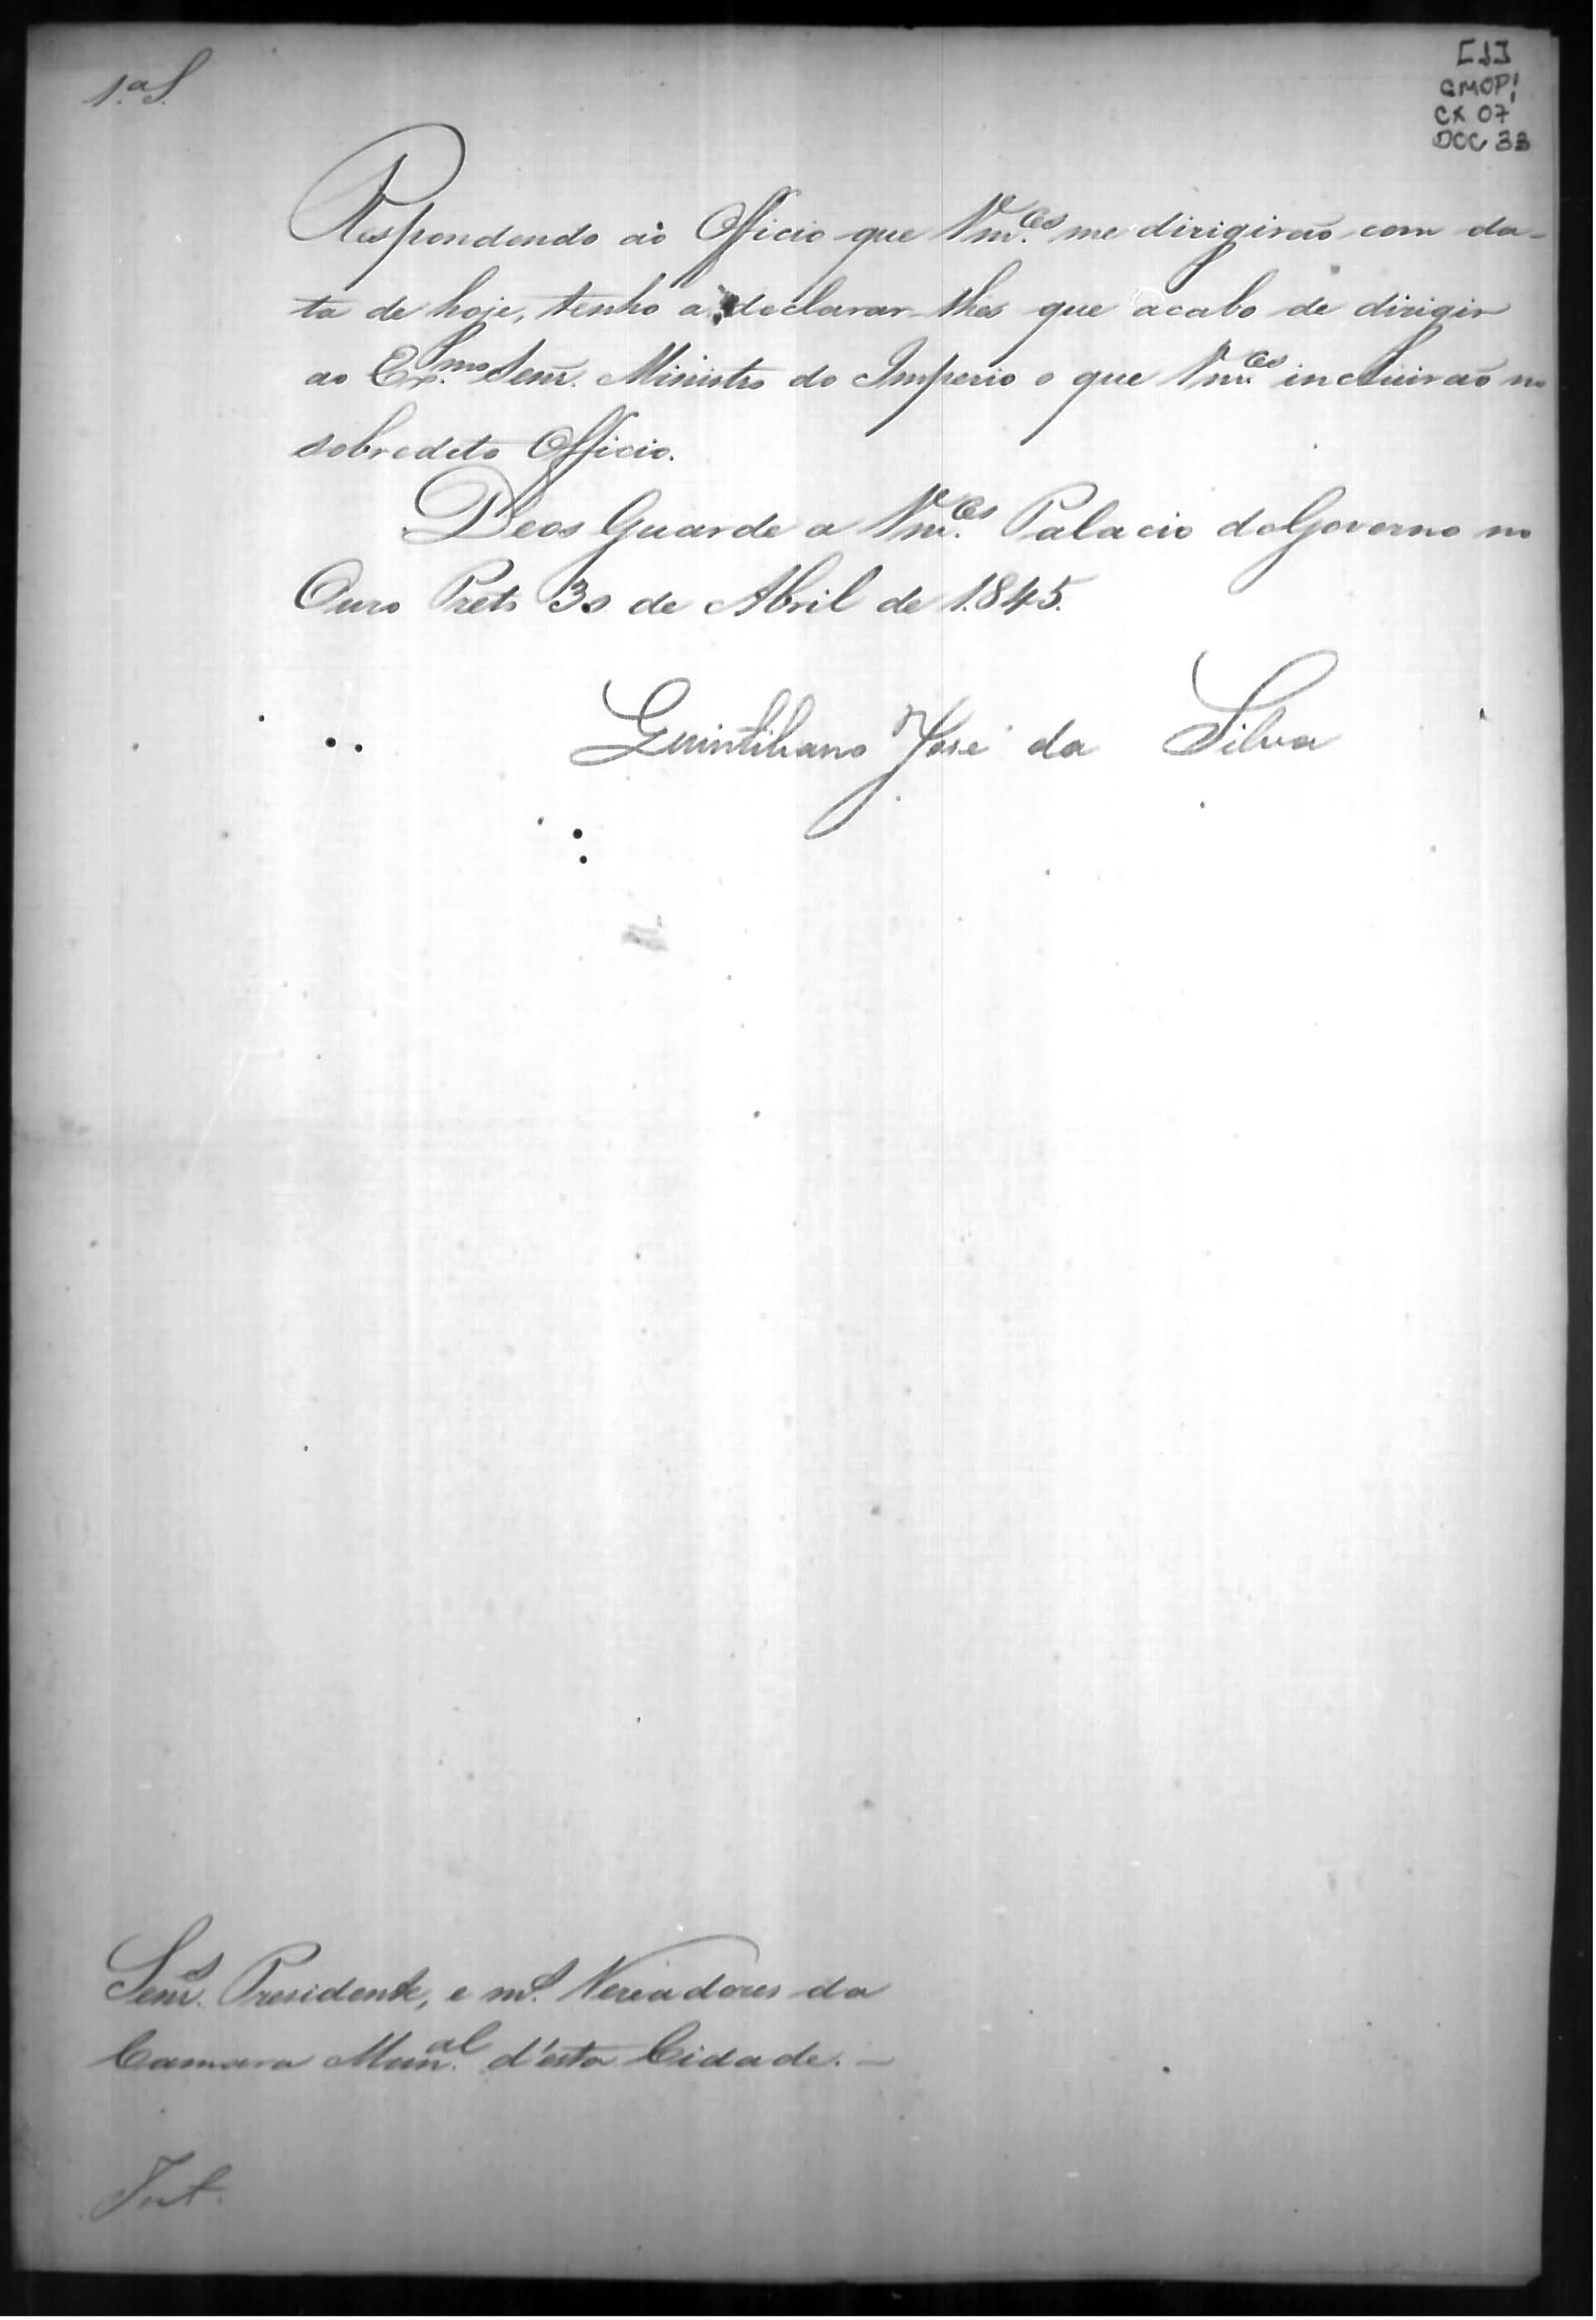 1.ª S.
[1]
CMOP
CX 07
DOC 33
Respondendo ao Officio que Vm.ces me dirigirão com da-
ta de hoje, tenho a declarar-lhes que acabo de dirigir
ao Ex.mo Senr. Ministro do Imperio o que Vm.ces incluirão no
sobredito Officio.
Deos Guarde a Vm.ces Palacio do Governo no
Ouro Preto 30 de Abril de 1845.
Quintiliano José da Silva
Senrs. Presidente, e m.s Vereadores da
Camara Mun.al d'esta Cidade. —